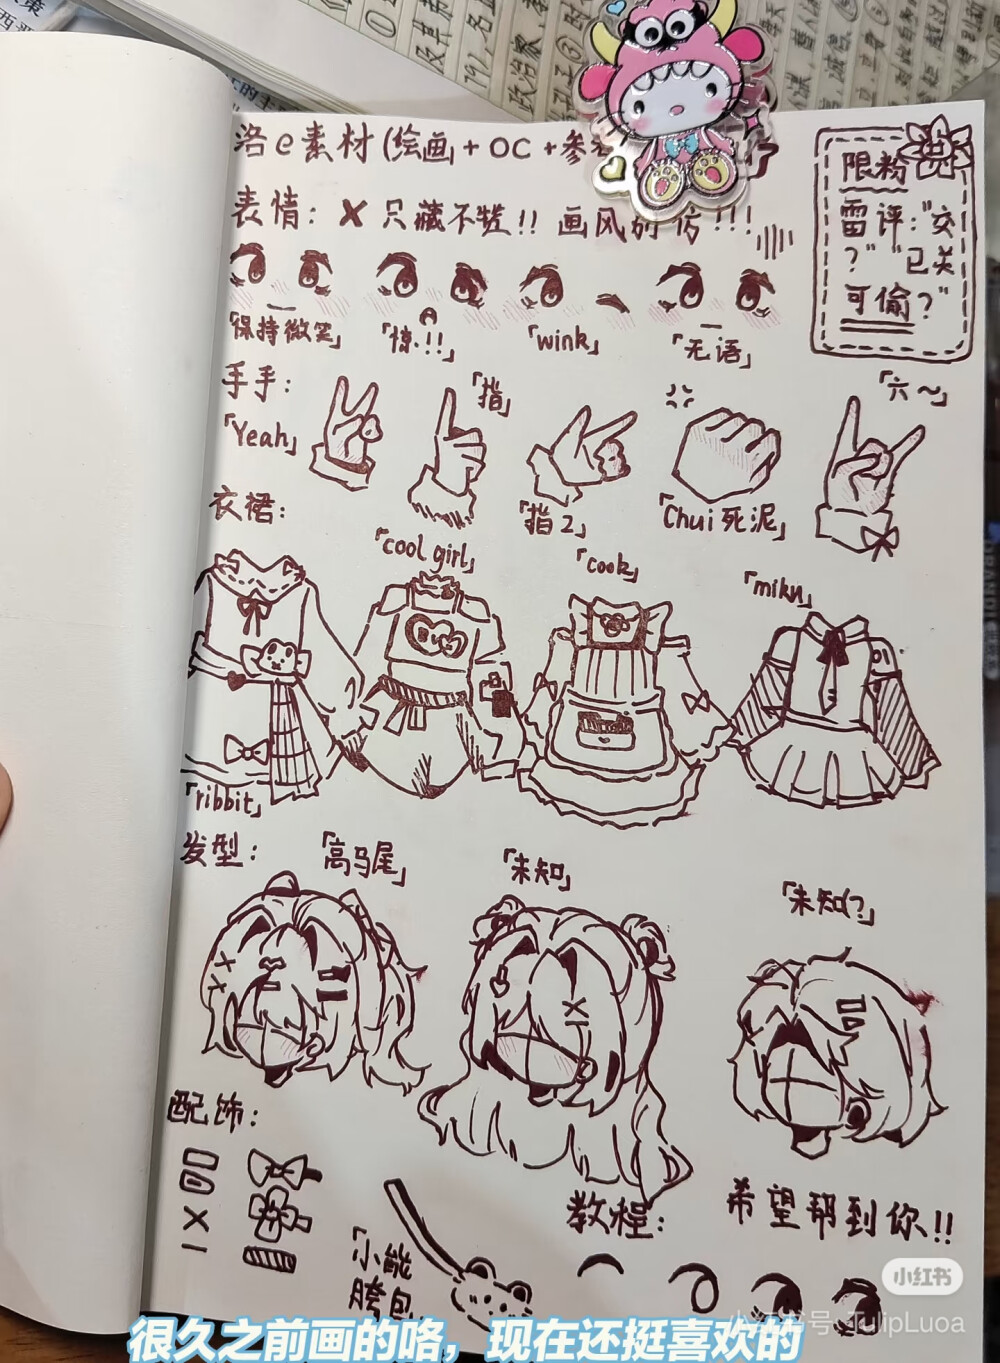 洛e素材(绘画+OC+参考
限粉
雷评:"交
?""已关
可偷?"
表情: X 只藏不赞!! 画风别仿!!!
「保持微笑」 「惊.!!」 「wink」 「无语」
手手:
「Yeah」 「指」 「指2」 「Chui死泥」 「六~」
衣裙:
「ribbit」 「cool girl」 「cook」 「miku」
发型: 「高马尾」 「未知」 「未知?」
配饰:
「小熊
胯包
教程: 希望帮到你!!
小红书
小红书号:TulipLuoa
很久之前画的咯，现在还挺喜欢的